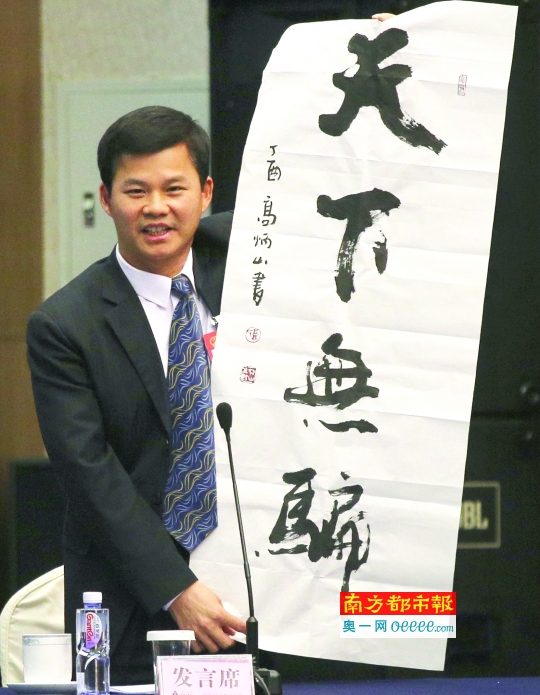 天下無騙
丁酉 高炳山書
JBL
南方都市報
奥一网 oeeee.com
Ganten
发言席